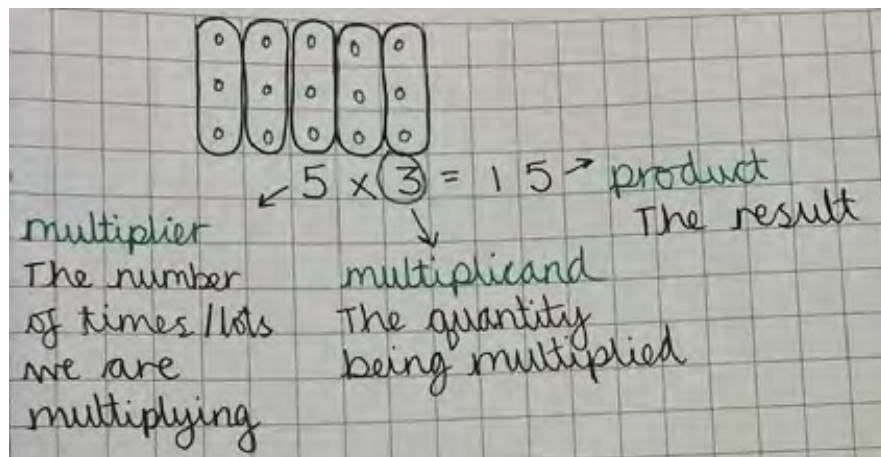 5 x 3 = 15 → product
The result
multiplier
The number
of times/lots
we are
multiplying
multiplicand
The quantity
being multiplied